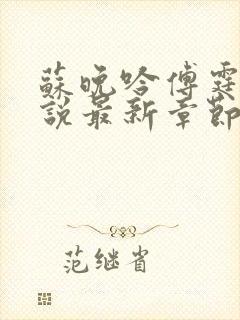 蘇晚吟傅霆
說最新章節
范继省